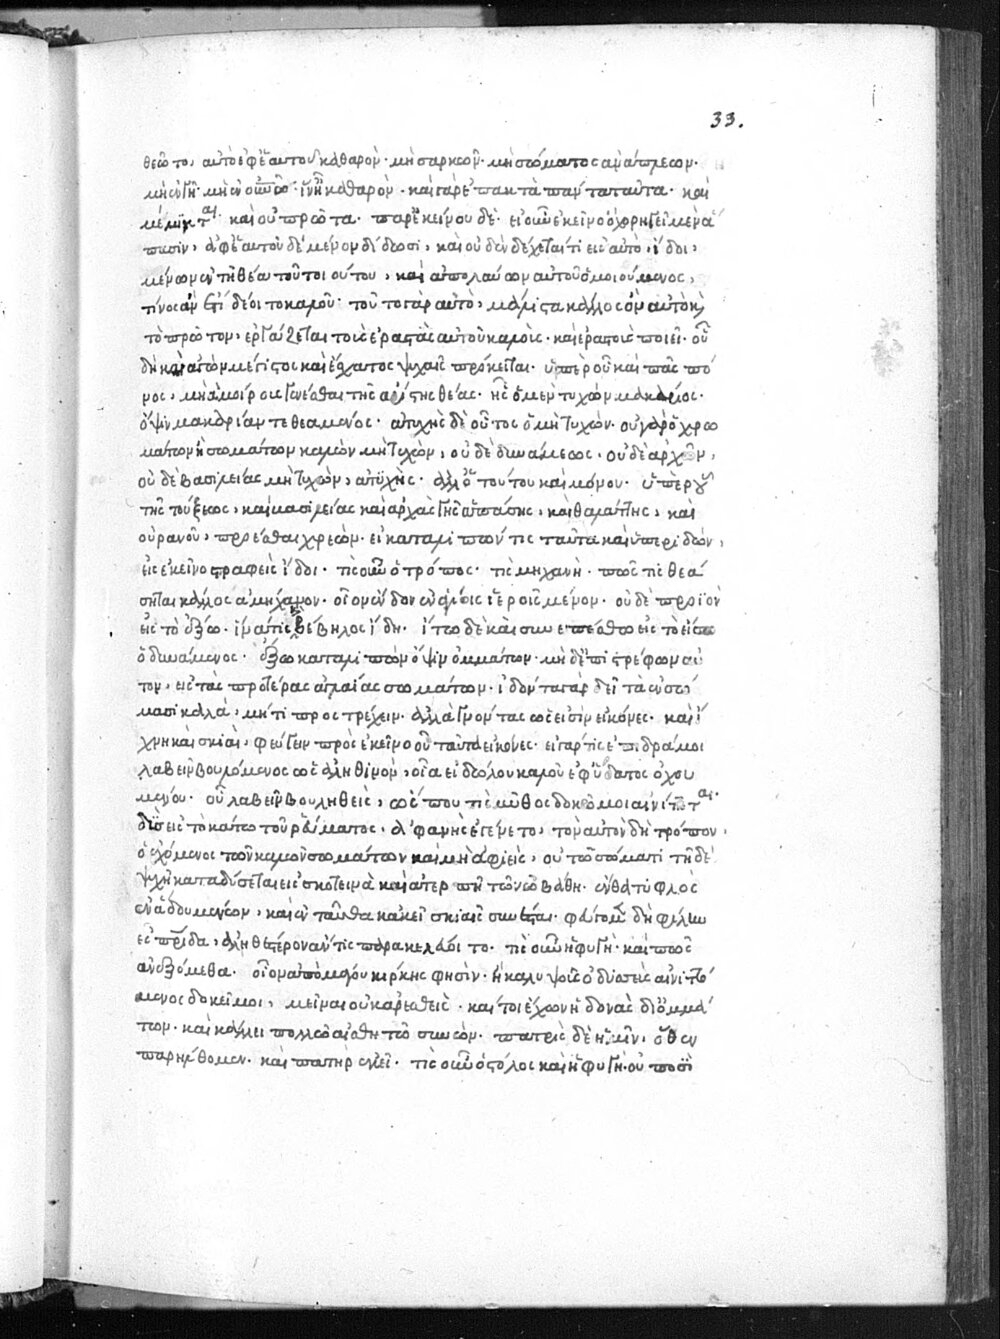 θεῶτο, αὐτὸ ἐφ' ἑαυτοῦ καθαρὸν· μὴ σαρκῶν· μὴ σώματος ἀνάπλεων·
μὴ ἐν γῆ· μὴ ἐν οὐνῶ· ἵν' ἦ καθαρὸν· καὶ γὰρ ἐπακτὰ πάντα ταῦτα· καὶ
μέμικται· καὶ οὐ πρῶτα· παρ' ἐκείνου δὲ· εἰ οὖν ἐκεῖνο ὃ χορηγεῖ μὲν ἅ
πασιν, ἐφ' ἑαυτοῦ δὲ μένον δίδωσι, καὶ οὐδὲν δέχεταί τι εἰς αὐτὸ, ἴδοι,
μένων ἐν τῆ θέα τοῦ τοιούτου, καὶ ἀπολαύων αὐτοῦ ὁμοιούμενος,
τίνος ἂν ἔτι δέοι τὸ καλοῦ· τοῦτο γὰρ αὐτὸ, μάλιστα κάλλος ὂν αὐτὸ καὶ
τὸ πρῶτον, ἐργάζεται τοὺς ἐραστὰς αὐτοῦ καλοὺς· καὶ ἐραστοὺς ποιεῖ· οὗ
δὴ καὶ ἀγὼν μέγιστος καὶ ἔσχατος ψυχαῖς πρόκειται· ὑπὲρ οὗ καὶ πᾶς πό
νος, μὴ ἀμοίρους γενέσθαι τῆς ἀρίστης θέας· ἧς ὁ μὲν τυχὼν μακάριος·
ὄψιν μακαρίαν τεθεαμένος· ἀτυχὴς δὲ οὗτος ὁ μὴ τυχὼν· οὐ γὰρ ὁ χρω
μάτων ἢ σωμάτων καλῶν μὴ τυχὼν, οὐδὲ δυνάμεως· οὐδὲ ἀρχῶν,
οὐδὲ βασιλείας μὴ τυχὼν, ἀτυχὴς· ἀλλ' ὁ τούτου καὶ μόνου· ὑπὲρ οὗ
τῆς τεύξεως, καὶ βασιλείας καὶ ἀρχὰς γῆς ἁπάσης, καὶ θαλάττης, καὶ
οὐρανοῦ, προέσθαι χρεὼν· εἰ καταλιπών τις ταῦτα καὶ ὑπεριδὼν,
εἰς ἐκεῖνο στραφεὶς ἴδοι· τίς οὖν ὁ τρόπος· τίς μηχανὴ· πῶς τις θεά
σηται κάλλος ἀμήχανον· οἷον ἔνδον ἐν ἁγίοις ἱεροῖς μένον· οὐδὲ προϊὸν
εἰς τὸ ἔξω· ἵνα τίς βέβηλος ἴδη· ἴτω δὲ καὶ συνεπέσθω εἰς τὸ εἴσω
ὁ δυνάμενος· ἔξω καταλιπὼν ὄψιν ὀμμάτων· μὴ δ' ἐπιστρέφων αὑ
τὸν, εἰς τὰς προτέρας ἀγλαΐας σωμάτων· ἰδόντα γὰρ δεῖ τὰ ἐν σώ
μασι καλὰ, μήτι προστρέχειν· ἀλλὰ γνόντας ὥς εἰσιν εἰκόνες· καὶ ἴ
χνη καὶ σκιαὶ, φεύγειν πρὸς ἐκεῖνο οὗ ταῦτα εἰκόνες· εἰ γάρ τις ἐπιδράμοι
λαβεῖν βουλόμενος ὡς ἀληθινὸν, οἷα εἰδώλου καλοῦ ἐφ' ὕδατος ὀχου
μένου· οὗ λαβεῖν βουληθεὶς, ὥς που τὶς μῦθος δοκῶ μοι αἰνίττεται·
δὺς εἰς τὸ κάτω τοῦ ῥεύματος, ἀφανὴς ἐγένετο, τὸν αὐτὸν δὴ τρόπον,
ὁ ἐχόμενος τῶν καλῶν σωμάτων καὶ μὴ ἀφιεὶς, οὐ τῶ σώματι τῆ δὲ
ψυχῆ καταδύσεται εἰς σκοτεινὰ καὶ ἀτερπῆ τῶ νῶ βάθη· ἔνθα τυφλὸς
ἐν ἅδου μένων, καὶ ἐνταῦθα κἀκεῖ σκιαῖς συνέσται· φεύγωμεν δὴ φίλην
ἐς πρίδα, ἀληθέστερον ἄν τις παρακελεύοιτο· τίς οὖν ἡ φυγὴ· καὶ πῶς
ἀναξόμεθα· οἷον ἀπὸ μάγου κίρκης φησὶν· ἢ καλυψοῦς ὀδυσσεὺς αἰνιττό
μενος δοκεῖ μοι, μεῖναι οὐκ ἀρεσθεὶς· καίτοι ἔχων ἡδονὰς δι' ὀμμά
των· καὶ κάλλει πολλῶ αἰσθητῶ συνὼν· πατρὶς δὲ ἡμῖν, ὅθεν
παρήλθομεν· καὶ πατὴρ ἐκεῖ· τίς οὖν ὁ στόλος καὶ ἡ φυγὴ· οὐ ποσὶ
33.